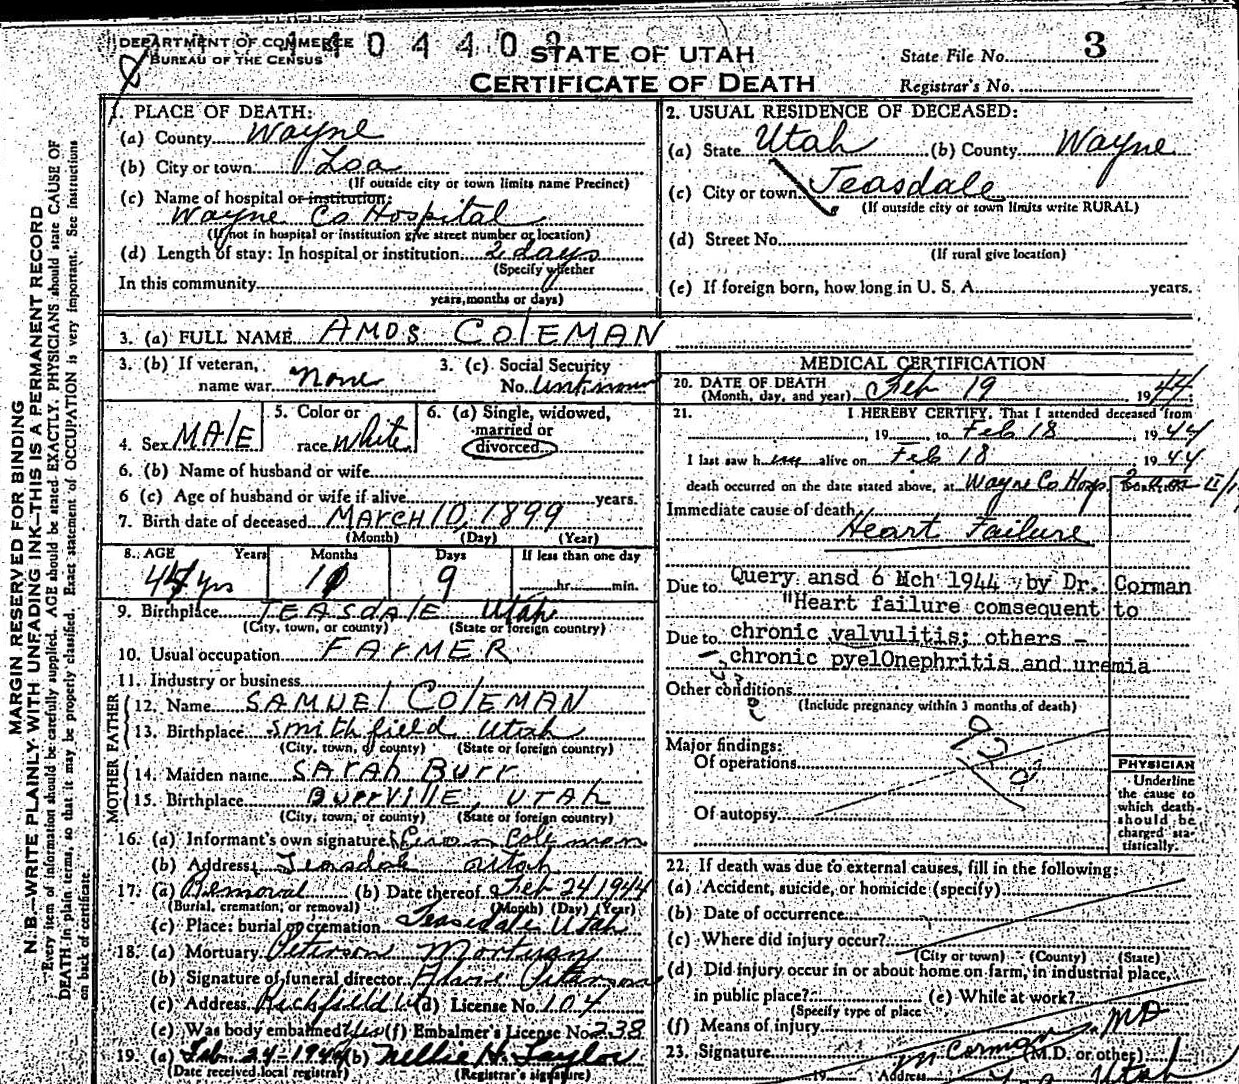 DEPARTMENT OF COMMERCE
BUREAU OF THE CENSUS
140440
STATE OF UTAH
CERTIFICATE OF DEATH
State File No. 3
Registrar's No.
MARGIN RESERVED FOR BINDING
N. B.—WRITE PLAINLY WITH UNFADING INK—THIS IS A PERMANENT RECORD
Every item of information should be carefully supplied. AGE should be stated EXACTLY. PHYSICIANS should state CAUSE OF
DEATH in plain terms, so that it may be properly classified. Exact statement of OCCUPATION is very important. See instructions
on back of certificate.
1. PLACE OF DEATH:
(a) County Wayne
(b) City or town Loa
(If outside city or town limits name Precinct)
(c) Name of hospital or institution:
Wayne Co Hospital
(If not in hospital or institution give street number or location)
(d) Length of stay: In hospital or institution 2 days
(Specify whether
In this community
years, months or days)
2. USUAL RESIDENCE OF DECEASED:
(a) State Utah (b) County Wayne
(c) City or town Teasdale
(If outside city or town limits write RURAL)
(d) Street No.
(If rural give location)
(e) If foreign born, how long in U. S. A. years.
3. (a) FULL NAME AMOS COLEMAN
3. (b) If veteran, name war none
3. (c) Social Security No. unknown
4. Sex MALE
5. Color or race white
6. (a) Single, widowed, married or divorced
6. (b) Name of husband or wife
6 (c) Age of husband or wife if alive years.
7. Birth date of deceased MARCH 10, 1899
(Month) (Day) (Year)
8. AGE Years Months Days If less than one day
44 yrs 11 9 hr. min.
9. Birthplace TEASDALE Utah
(City, town, or county) (State or foreign country)
10. Usual occupation FARMER
11. Industry or business
FATHER
12. Name SAMUEL COLEMAN
13. Birthplace Smithfield Utah
(City, town, or county) (State or foreign country)
MOTHER
14. Maiden name SARAH BURR
15. Birthplace BURRVILLE, UTAH
(City, town, or county) (State or foreign country)
16. (a) Informant's own signature Coleman
(b) Address Teasdale Utah
17. (a) Removal (b) Date thereof Feb 24 1944
(Burial, cremation, or removal) (Month) (Day) (Year)
(c) Place: burial or cremation Teasdale Utah
18. (a) Mortuary Peterson Mortuary
(b) Signature of funeral director Peterson
(c) Address Richfield U (d) License No. 104
(e) Was body embalmed? Yes (f) Embalmer's License No. 238
19. (a) Feb. 24-1944 (b) Nellie H. Taylor
(Date received local registrar) (Registrar's signature)
MEDICAL CERTIFICATION
20. DATE OF DEATH
(Month, day, and year) Feb 19 1944
21. I HEREBY CERTIFY, That I attended deceased from
, 19 to Feb 18, 1944
I last saw him alive on Feb 18 1944
death occurred on the date stated above, at Wayne Co Hosp.
Immediate cause of death
Heart Failure
Due to Query ansd 6 Mch 1944 by Dr. Corman
"Heart failure comsequent to
Due to chronic valvulitis; others -
chronic pyelOnephritis and uremia
Other conditions
(Include pregnancy within 3 months of death)
Major findings:
Of operations
Of autopsy
PHYSICIAN
Underline
the cause to
which death
should be
charged sta-
tistically.
22. If death was due to external causes, fill in the following:
(a) Accident, suicide, or homicide (specify)
(b) Date of occurrence
(c) Where did injury occur?
(City or town) (County) (State)
(d) Did injury occur in or about home on farm, in industrial place,
in public place? (e) While at work?
(Specify type of place
(f) Means of injury
23. Signature Corman MD (M.D. or other)
19 Address Utah